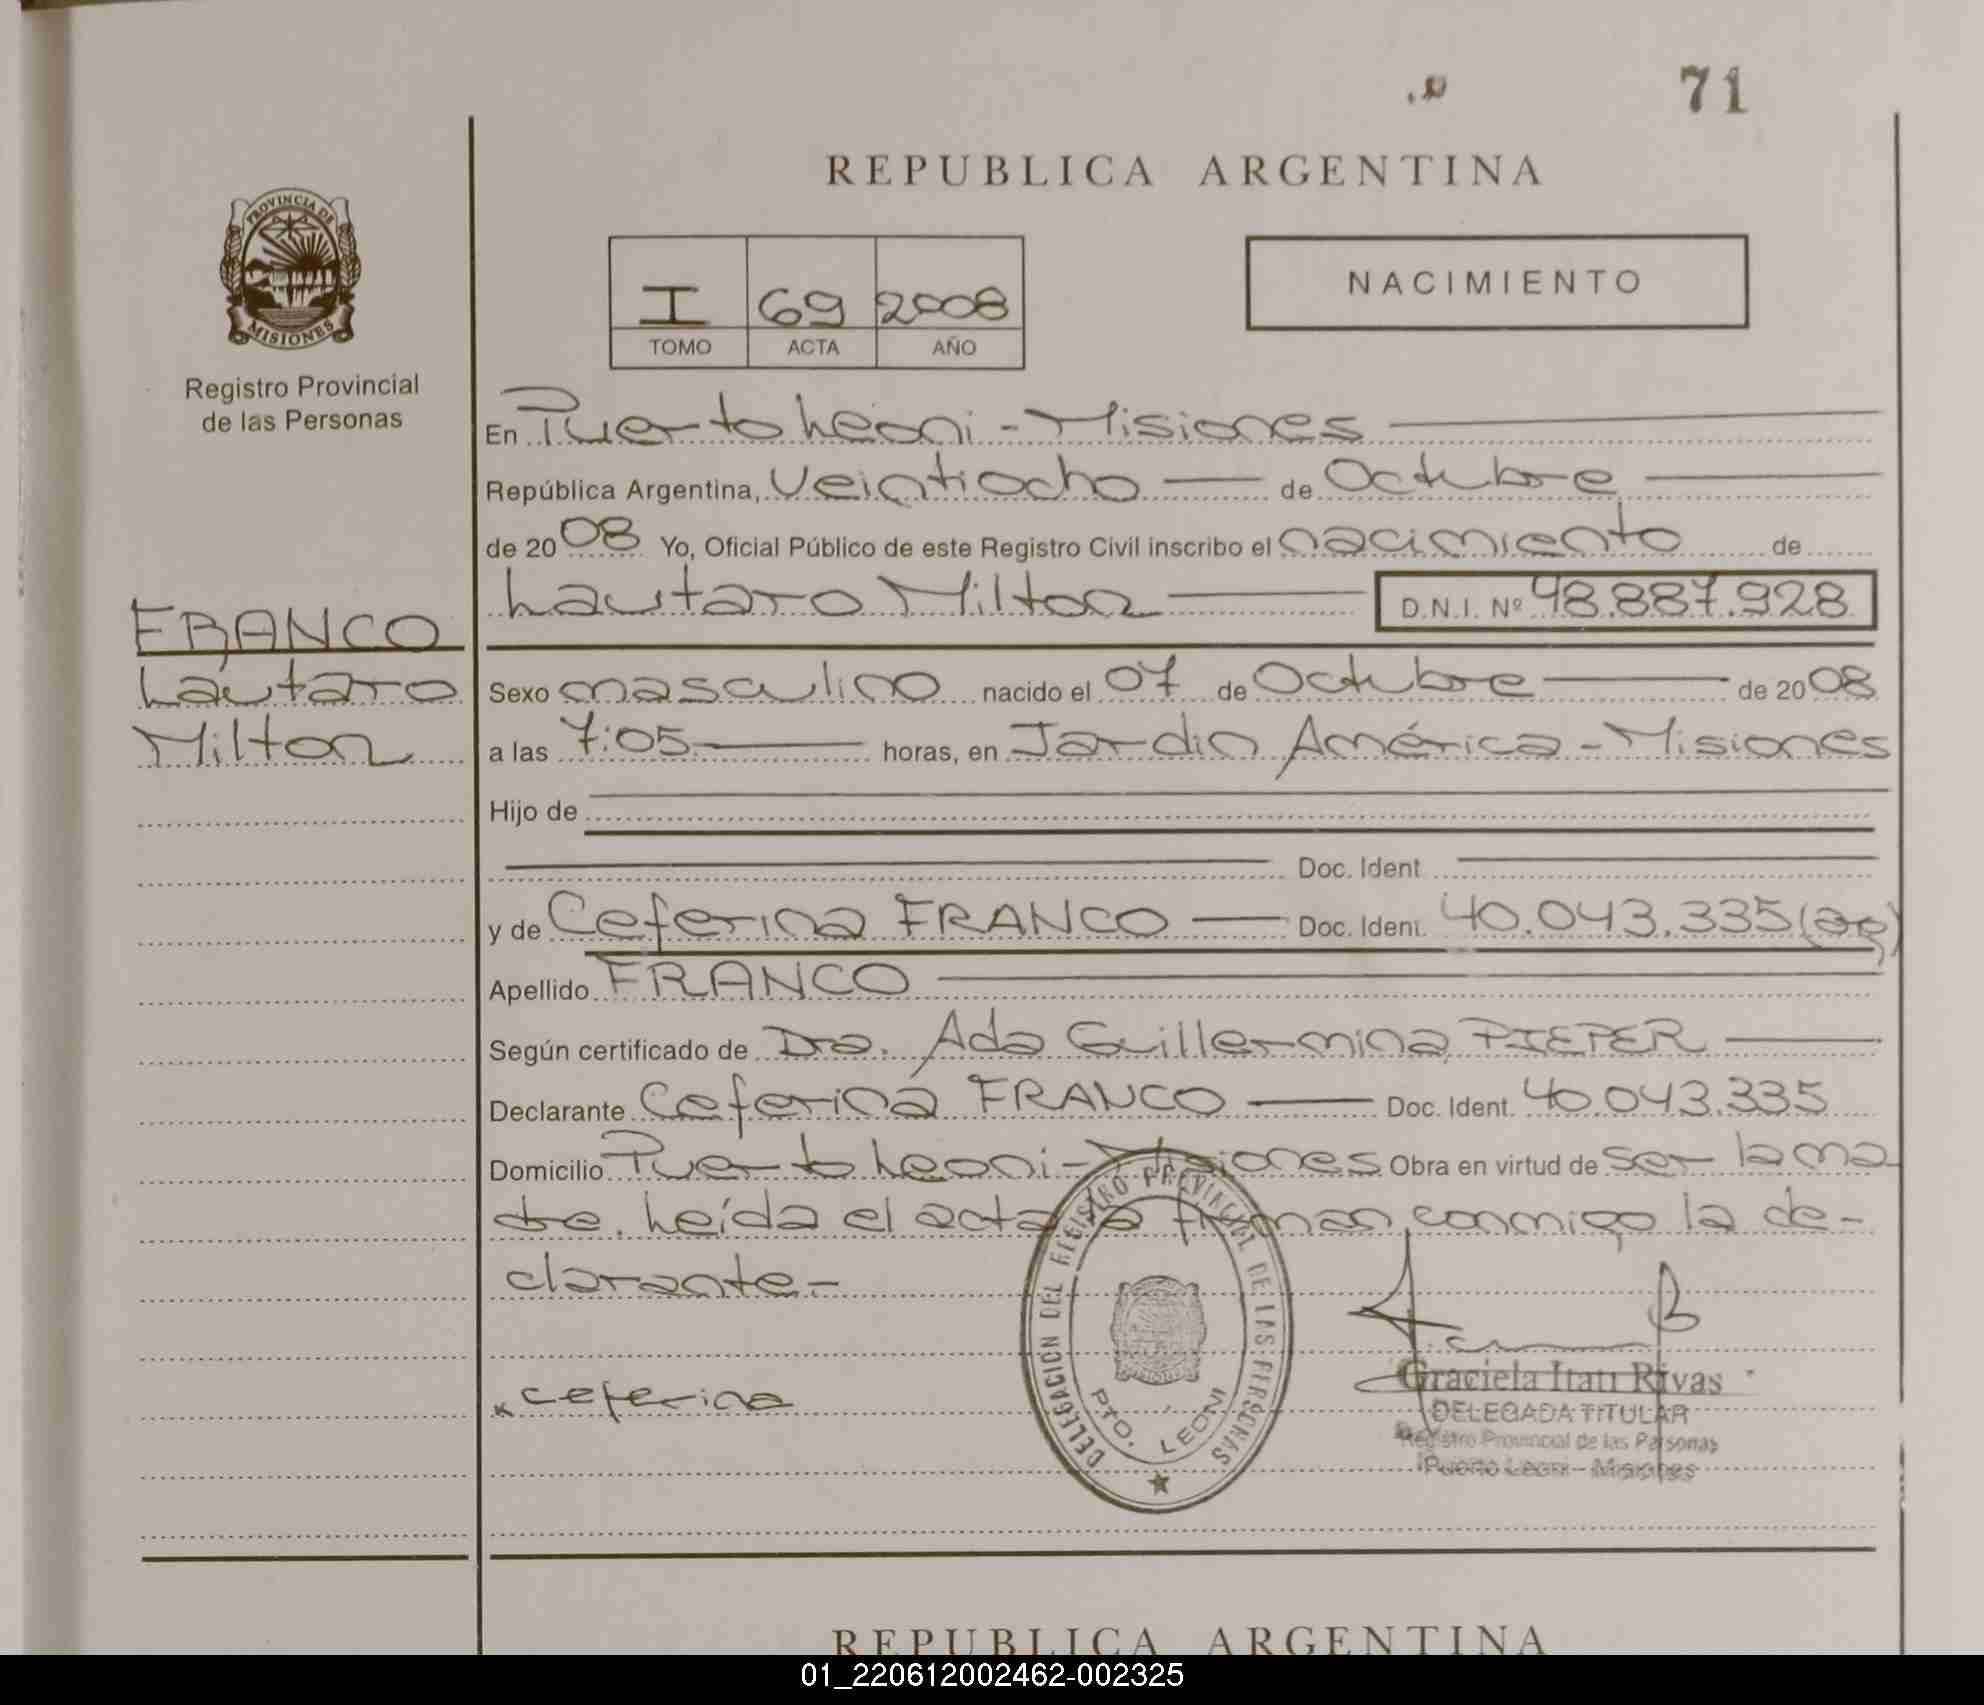 71
REPUBLICA ARGENTINA
PROVINCIA DE
MISIONES
Registro Provincial
de las Personas
NACIMIENTO
I 69 2008
TOMO ACTA AÑO
En Puerto Leoni - Misiones
República Argentina, veintiocho de Octubre
de 2008 Yo, Oficial Público de este Registro Civil inscribo el nacimiento de
Lautaro Milton D.N.I. Nº 48.887.928
FRANCO
Lautaro
Milton
Sexo masculino nacido el 07 de Octubre de 2008
a las 7:05 horas, en Jardin América - Misiones
Hijo de
Doc. Ident
y de Ceferina FRANCO Doc. Ident. 40.043.335 (ag)
Apellido FRANCO
Según certificado de Dra. Ada Guillermina PIEPER
Declarante Ceferina FRANCO Doc. Ident. 40.043.335
Domicilio Puerto Leoni - Misiones Obra en virtud de ser la ma
dre. Leída el acta la firman conmigo la de-
clarante-
ceferina
DELEGACION DEL REGISTRO PROVINCIAL DE LAS PERSONAS
PTO. LEONI
Graciela Itatí Rivas
DELEGADA TITULAR
Registro Provincial de las Personas
Puerto Leoni - Misiones
REPUBLICA ARGENTINA
01_220612002462-002325